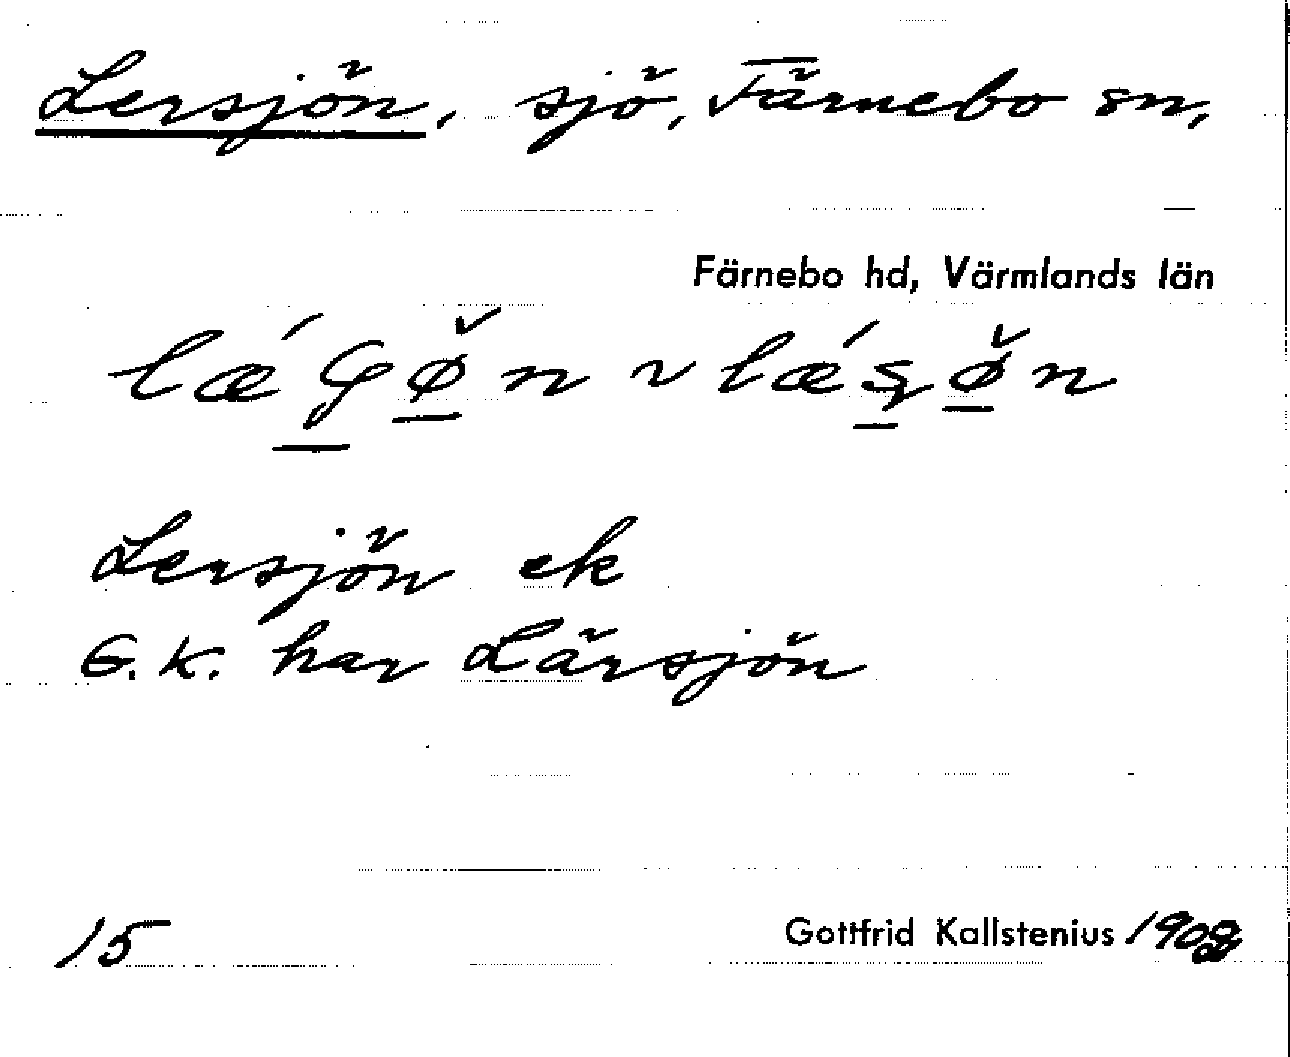 Lersjön, sjö, Färnebo sn,
Färnebo hd, Värmlands län
Lersjön ek
G.K. har Lärsjön
15
Gottfrid Kallstenius